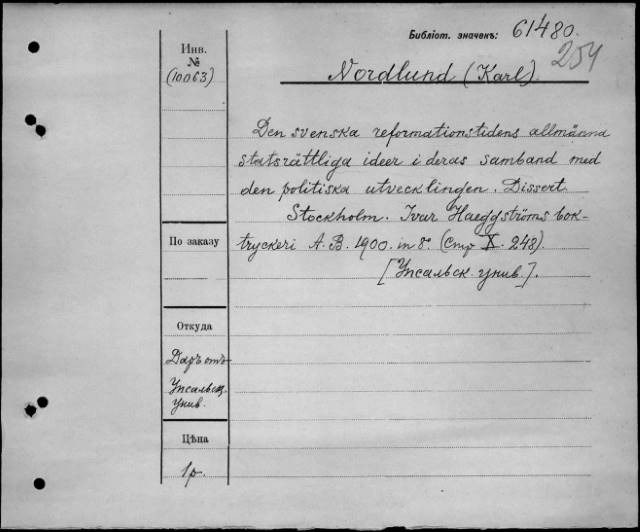 Библіот. значекъ: 61480.
254
Инв.
№
(10063)
Nordlund (Karl).
Den svenska reformationstidens allmänna
statsrättliga ideer i deras samband med
den politiska utvecklingen. Dissert.
Stockholm. Ivar Haeggströms bok-
tryckeri A. B. 1900. in 8°. (Стр X. 248).
[Упсальск. унив.].
По заказу
Откуда
Даръ отъ
Упсальск.
унив.
Цѣна
1р.